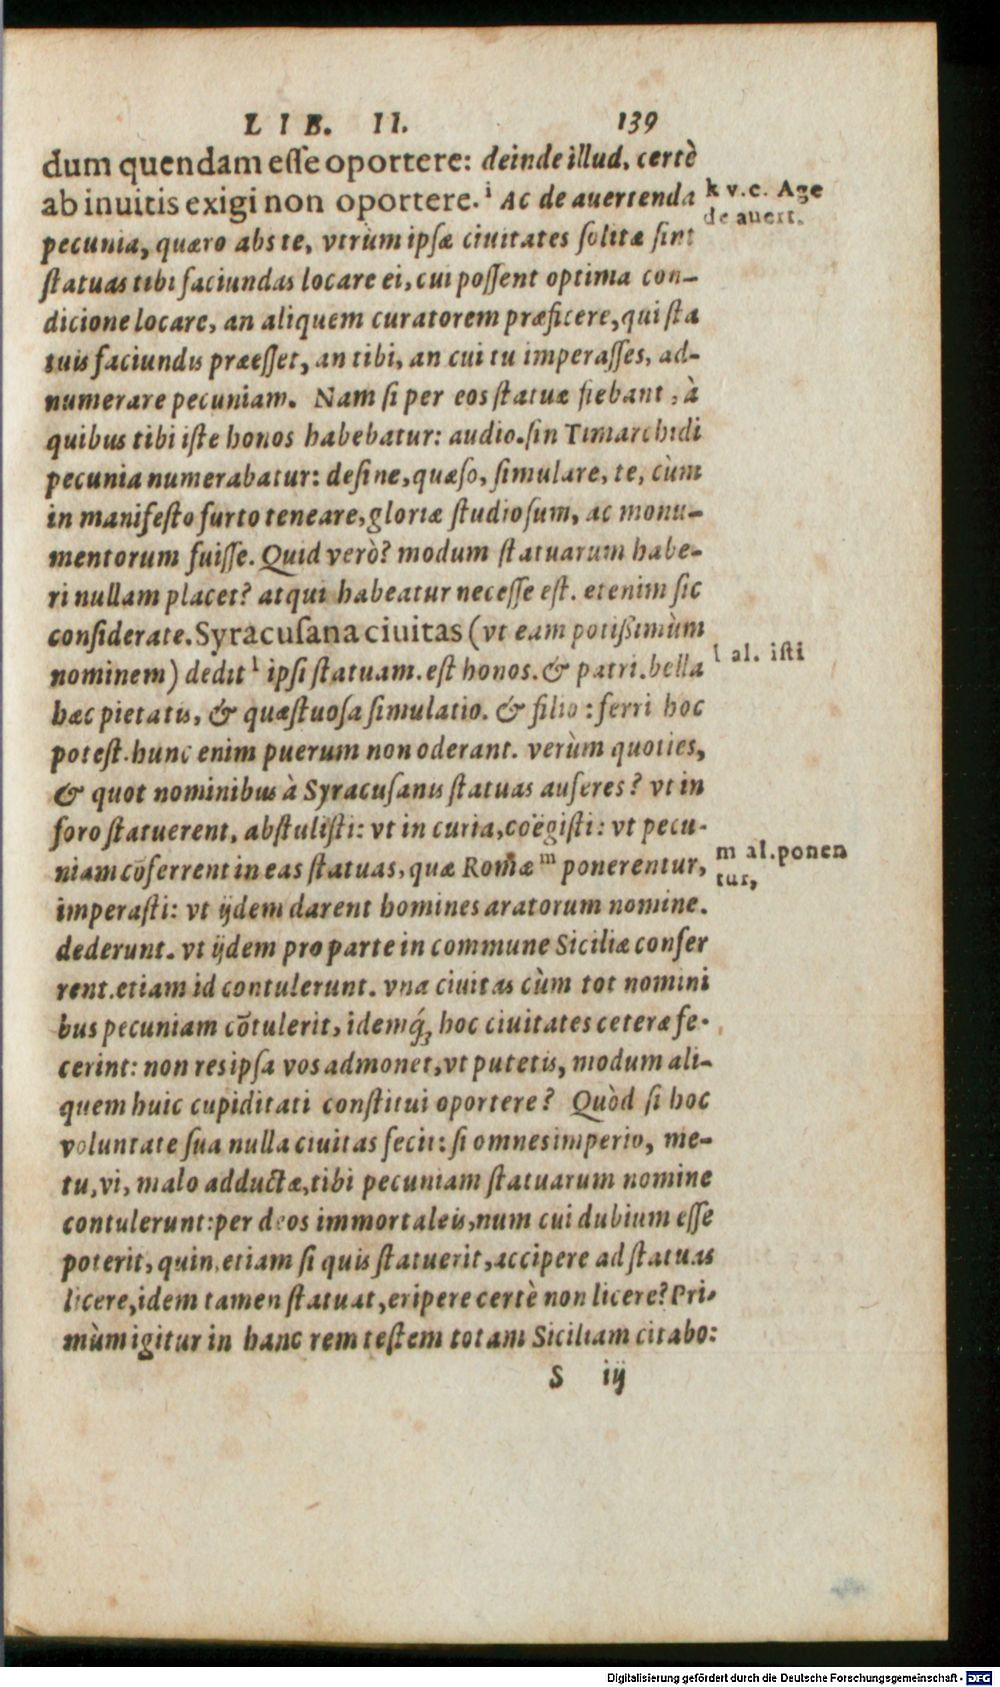 LIB. II. 139
dum quendam eſſe oportere: deinde illud, certè
ab inuitis exigi non oportere.ⁱ Ac de auertenda
k v.c. Age
de auert.
pecunia, quæro abs te, vtrùm ipſæ ciuitates ſolitæ ſint
ſtatuas tibi faciundas locare ei, cui poſſent optima con-
dicione locare, an aliquem curatorem præficere, qui ſta
tuis faciundis præeſſet, an tibi, an cui tu imperaſſes, ad-
numerare pecuniam. Nam ſi per eos ſtatuæ fiebant, à
quibus tibi iſte honos habebatur: audio. ſin Timarchidi
pecunia numerabatur: deſine, quæſo, ſimulare, te, cùm
in manifeſto furto teneare, gloriæ ſtudioſum, ac monu-
mentorum fuiſſe. Quid verò? modum ſtatuarum habe-
ri nullam placet? atqui habeatur neceſſe eſt. etenim ſic
conſiderate. Syracuſana ciuitas (vt eam potißimùm
nominem) dedit ˡ ipſi ſtatuam. eſt honos. & patri. bella
l al. iſti
hæc pietatis, & quæſtuoſa ſimulatio. & filio: ferri hoc
poteſt. hunc enim puerum non oderant. verùm quoties,
& quot nominibus à Syracuſanis ſtatuas auferes? vt in
foro ſtatuerent, abſtuliſti: vt in curia, coëgiſti: vt pecu-
niam cõferrent in eas ſtatuas, quæ Romæ ᵐ ponerentur,
m al. ponen
tur,
imperaſti: vt ijdem darent homines aratorum nomine.
dederunt. vt ijdem pro parte in commune Siciliæ confer
rent. etiam id contulerunt. vna ciuitas cùm tot nomini
bus pecuniam cõtulerit, idemq́; hoc ciuitates ceteræ fe-
cerint: non res ipſa vos admonet, vt putetis, modum ali-
quem huic cupiditati conſtitui oportere? Quòd ſi hoc
voluntate ſua nulla ciuitas fecit: ſi omnes imperio, me-
tu, vi, malo adductæ, tibi pecuniam ſtatuarum nomine
contulerunt: per deos immortaleis, num cui dubium eſſe
poterit, quin, etiam ſi quis ſtatuerit, accipere ad ſtatuas
licere, idem tamen ſtatuat, eripere certè non licere? Pri-
mùm igitur in hanc rem teſtem totam Siciliam citabo:
S iij
Digitalisierung gefördert durch die Deutsche Forschungsgemeinschaft - DFG